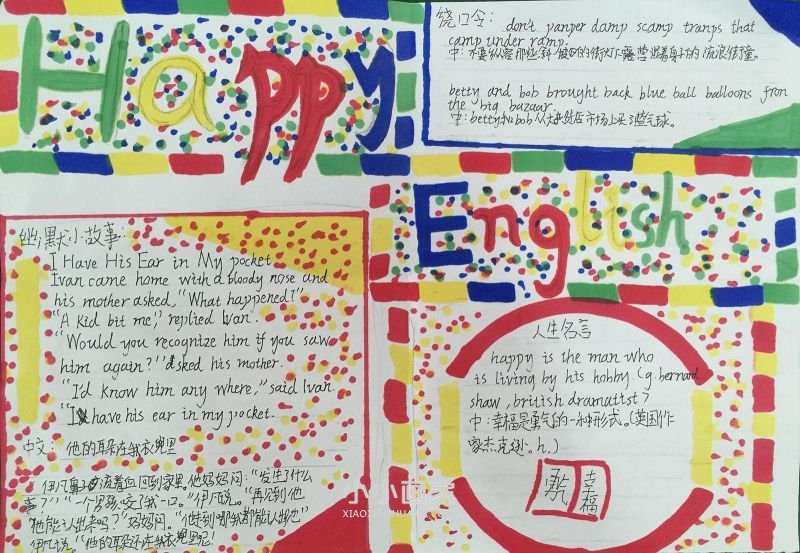 Happy
绕口令:
don't panper damp scamp tranps that
camp under ramp.
中:不要纵容那些斜坡口的街灯下露营湿着身子的流浪街童。
betty and bob brought back blue ball balloons from
the big bazaar.
中:betty和bob从大货店市场上买了蓝气球。
English
幽默小故事:
I Have His Ear in My pocket
Ivan came home with a bloody nose and
his mother asked, "What happened?"
"A kid bit me," replied Ivan.
"Would you recognize him if you saw
him again?" asked his mother.
"I'd know him any where," said Ivan.
"I have his ear in my pocket.
中文: 他的耳朵在我衣兜里
伊凡鼻子流着血回到家里,他妈妈问:"发生了什么
事?""一个男孩咬了我一口。"伊凡说。"再见到他
你能认出来吗?"妈妈问。"他走到哪我都能认出他"
伊凡说。"他的耳朵还在我衣兜里呢!
人生名言
happy is the man who
is living by his hobby (g.bernard
shaw, british dramatist)
中:幸福是勇气的一种形式。(英国作
家杰克逊. h.)
勇气
幸福